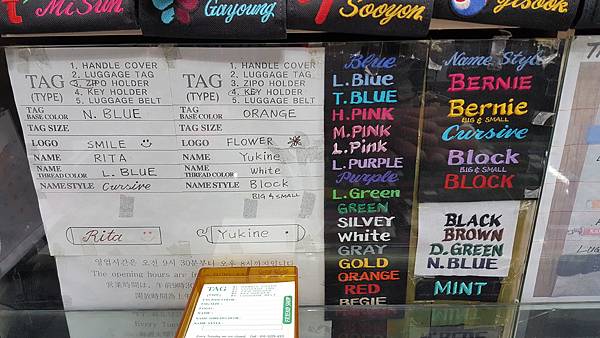 Mi Sun
Gayoung
Sooyon
Jisook
TAG
(TYPE)
1. HANDLE COVER
2. LUGGAGE TAG
3. ZIPO HOLDER
4. KEY HOLDER
5. LUGGAGE BELT
TAG
BASE COLOR
N. BLUE
TAG SIZE
LOGO
SMILE
NAME
RITA
NAME
THREAD COLOR
L. BLUE
NAME STYLE
Cursive
Rita
TAG
(TYPE)
1. HANDLE COVER
2. LUGGAGE TAG
3. ZIPO HOLDER
4. KEY HOLDER
5. LUGGAGE BELT
TAG
BASE COLOR
ORANGE
TAG SIZE
LOGO
FLOWER
NAME
Yukine
NAME
THREAD COLOR
White
NAME STYLE
Block
BIG & SMALL
Yukine
Blue
L.Blue
T.BLUE
H.PINK
M.PINK
L.Pink
L.PURPLE
Purple
L.Green
GREEN
SILVEY
White
GRAY
GOLD
ORANGE
RED
BEGIE
Name Style
BERNIE
Bernie
BIG & SMALL
Cursive
Block
BIG & SMALL
BLOCK
BLACK
BROWN
D.GREEN
N.BLUE
MINT
영업시간은 오전 9시 30분부터 오후
The opening hours are
営業時間は、午前9時30
TAG
(TYPE)
TAG SIZE :
LOGO :
NAME :
NAME STYLE :